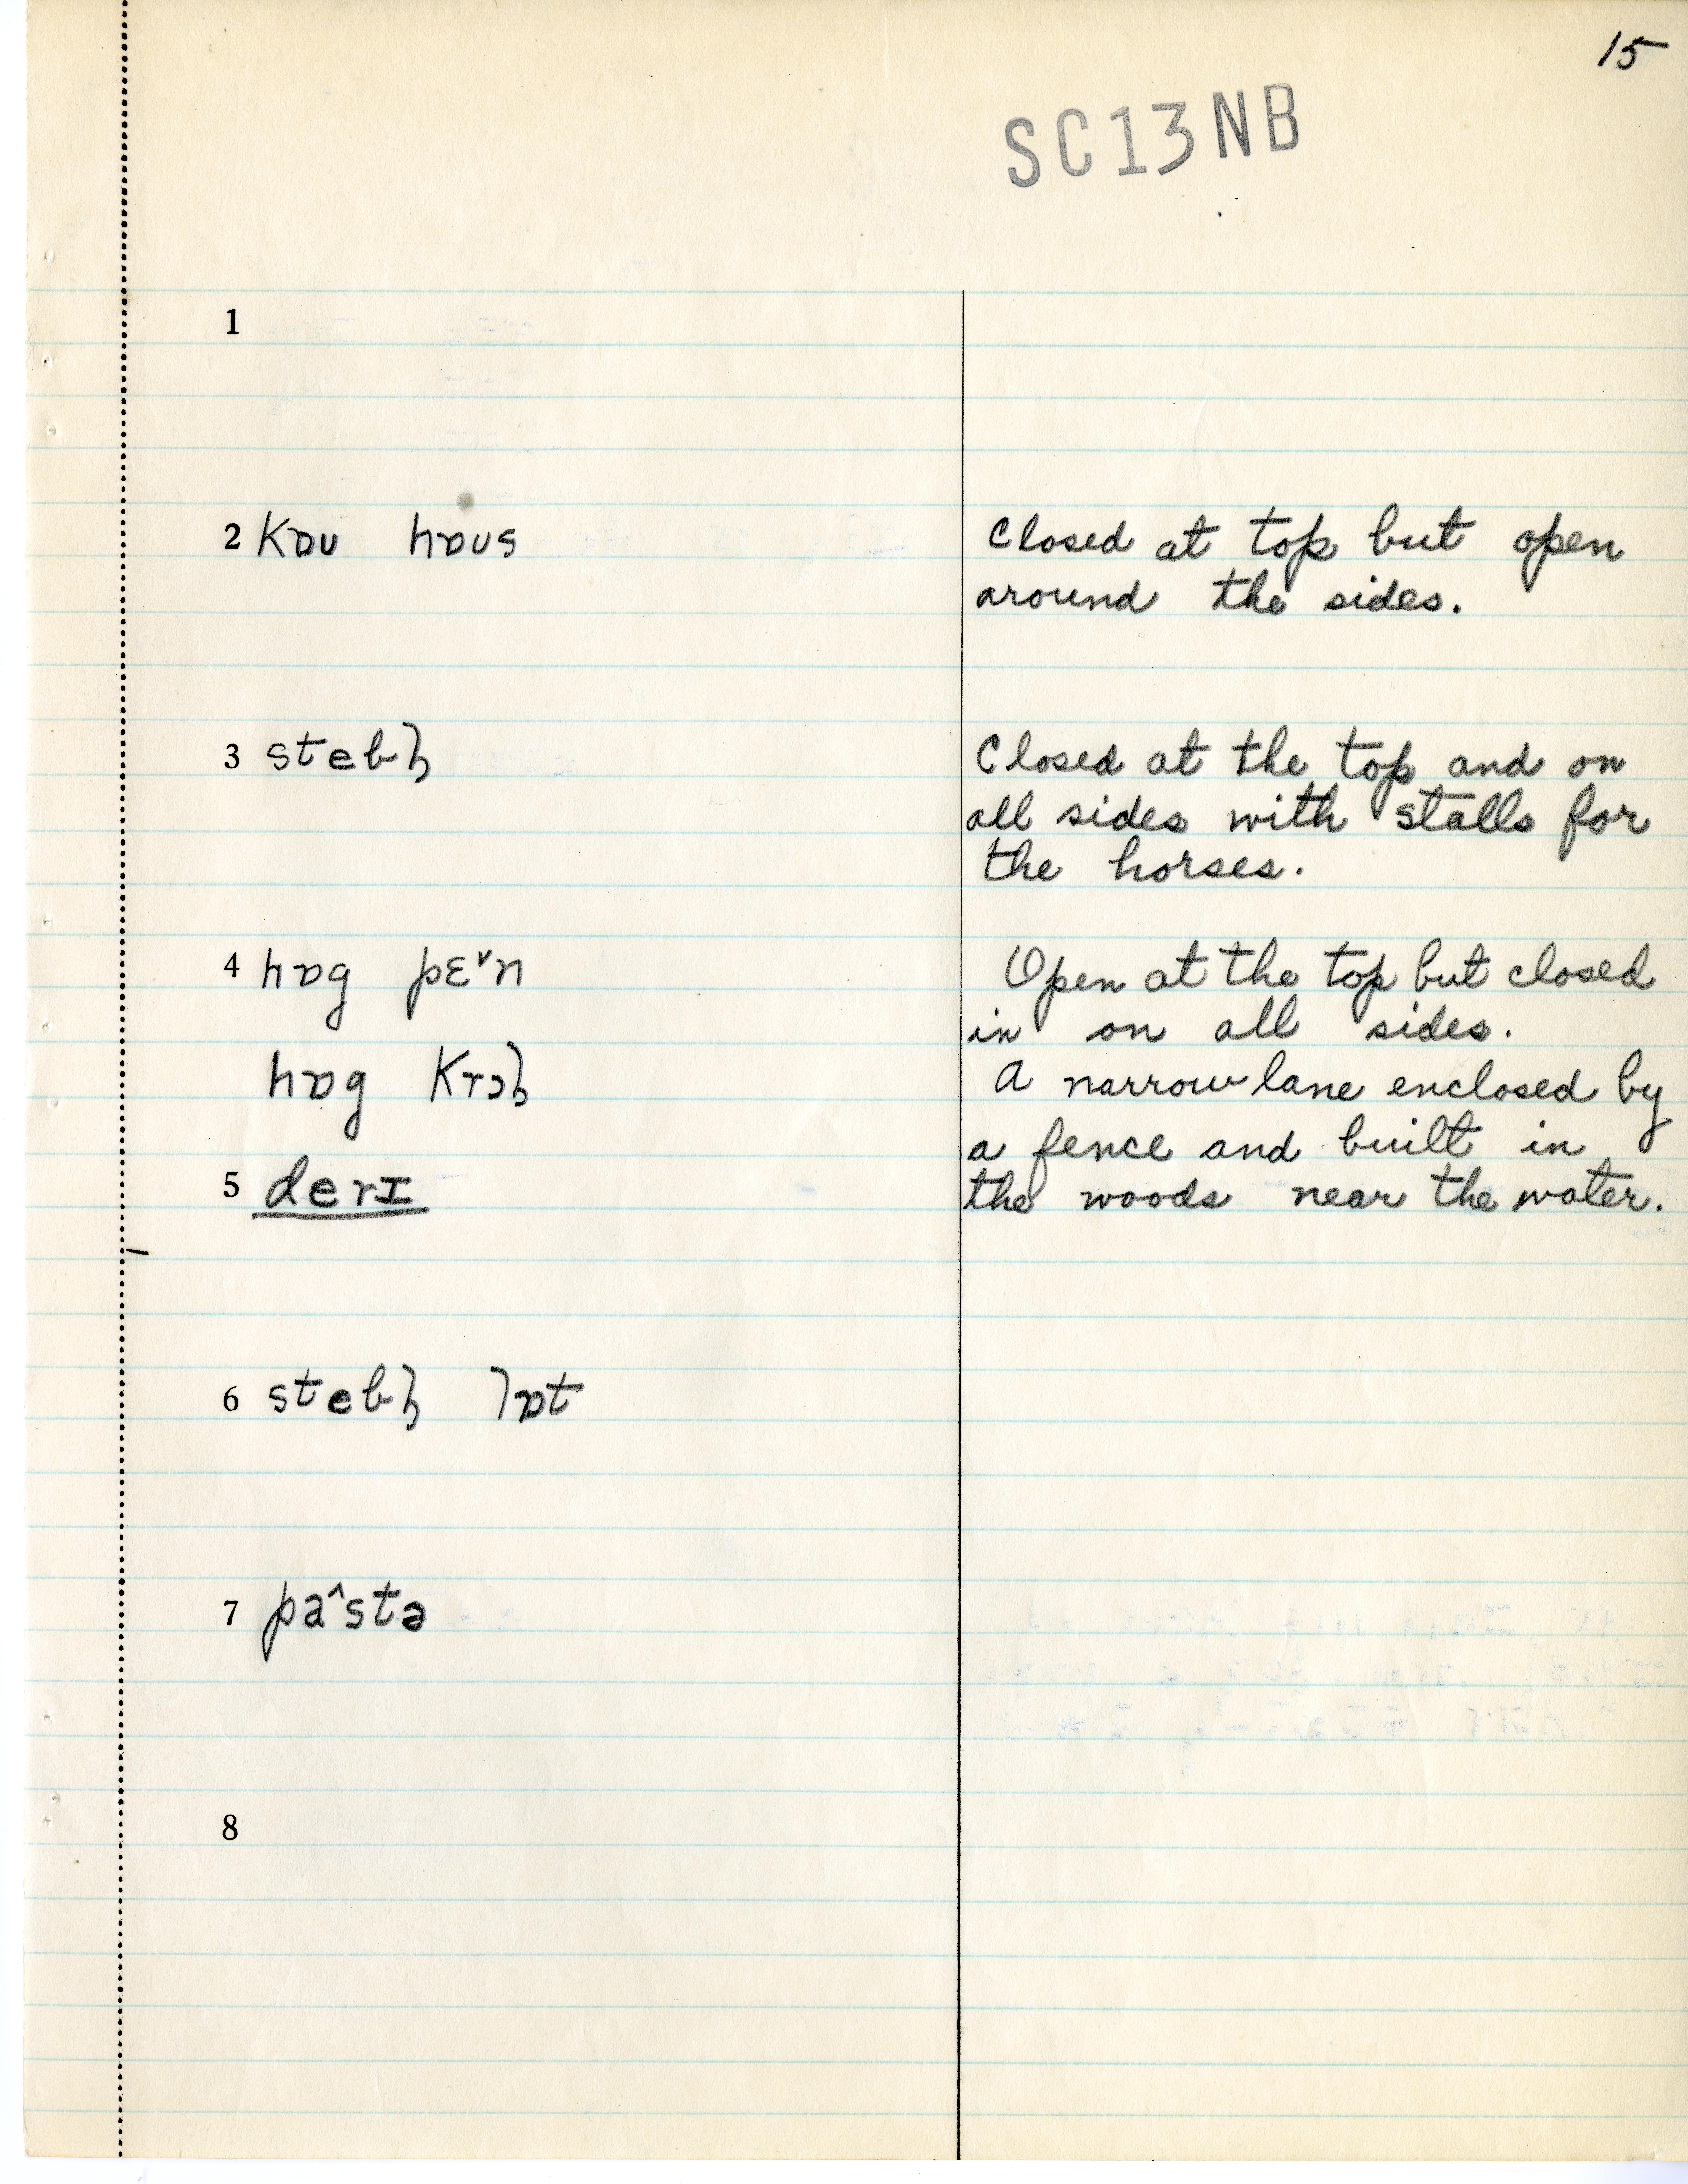 15
SC13NB
1
2 kɒu hɒus
Closed at top but open
around the sides.
3 stebl̩
Closed at the top and on
all sides with stalls for
the horses.
4 hɒg pɛ˅n
Open at the top but closed
in on all sides.
hɒg krɔl̩
A narrow lane enclosed by
a fence and built in
5 derɪ
the woods near the water.
6 stebl̩ lɒt
7 pa˄stə
8